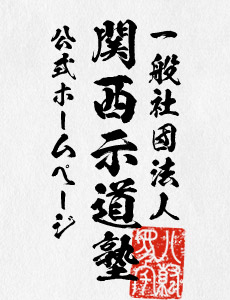 一般社団法人
関西示道塾
公式ホームページ